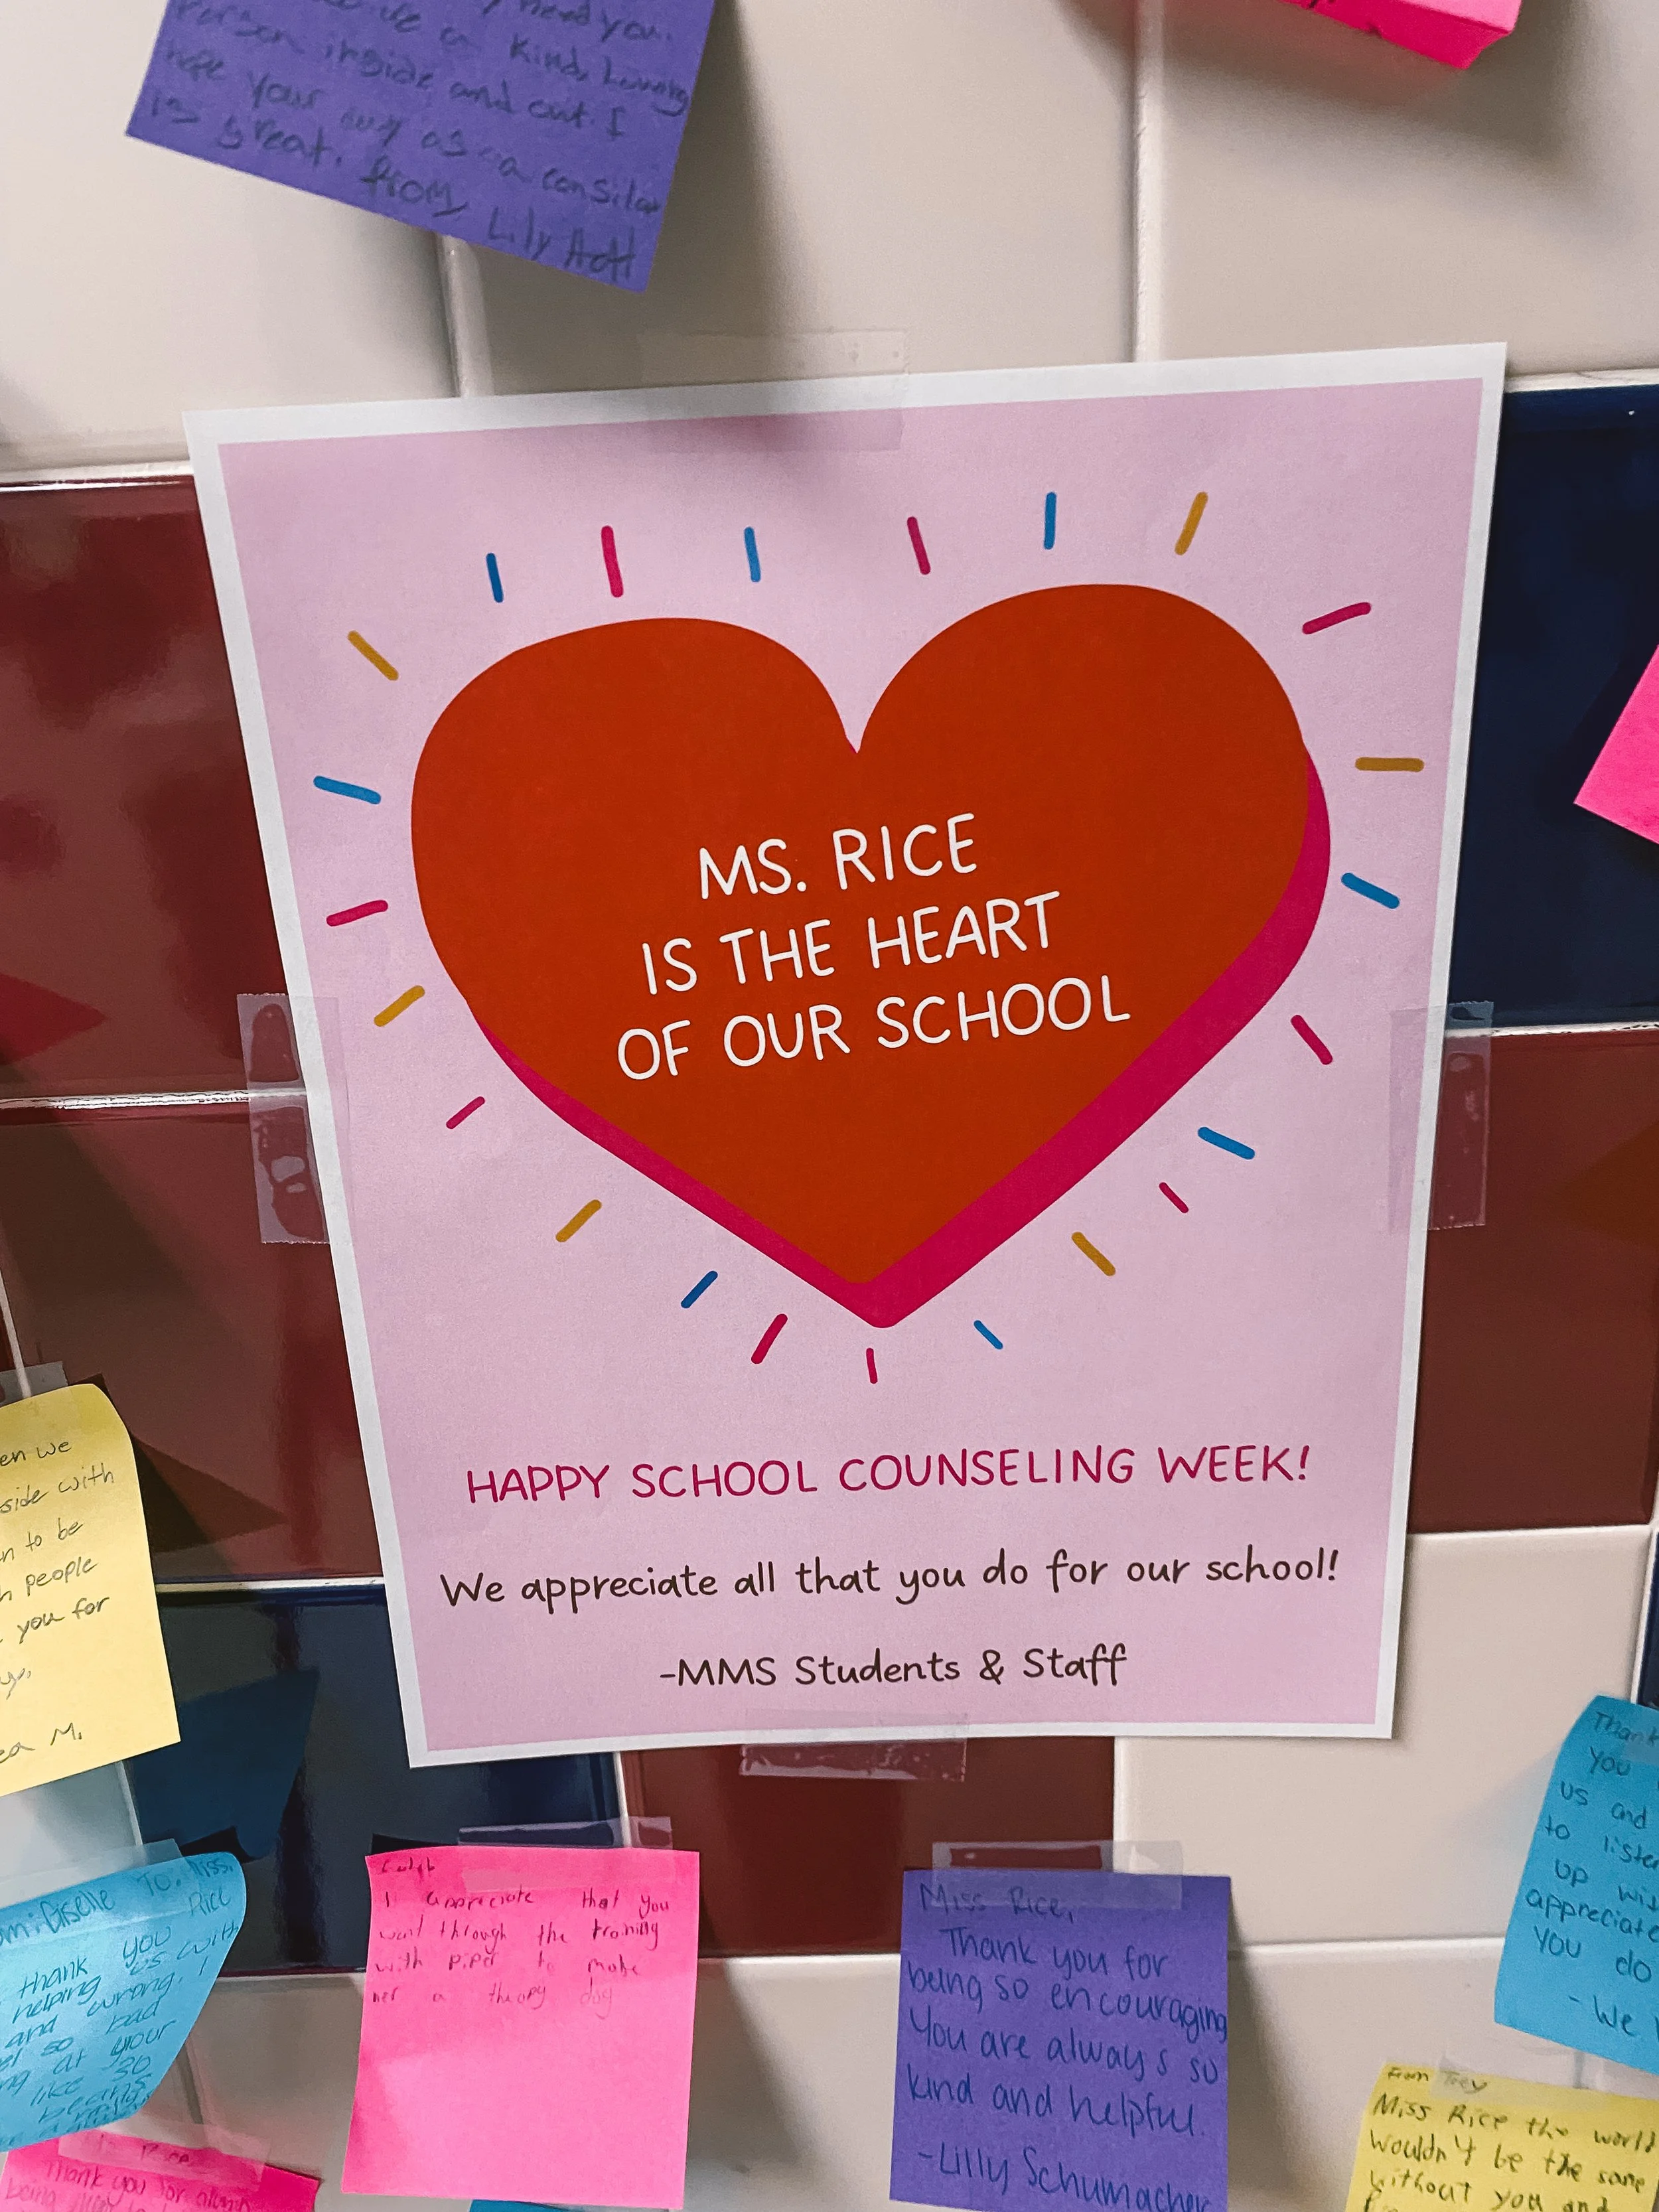 need you.
kind, loving
person inside and out. I
hope your day as a consiler
is great.
from Lily Hott
MS. RICE
IS THE HEART
OF OUR SCHOOL
HAPPY SCHOOL COUNSELING WEEK!
We appreciate all that you do for our school!
-MMS Students & Staff
en we
side with
n to be
people
you for
M.
Giselle To: Miss
Rice
thank you
helping us with
and wrong. I
so bad
at your
like so
I appreciate that you
went through the training
with piper to make
her a theopy dog
Miss Rice,
Thank you for
being so encouraging
You are always so
kind and helpful.
-Lilly Schumacher
Thank
you
us and
to listen
up wi
appreciate
you do
- We
From Trey
Miss Rice the world
wouldn't be the same
without you and
Thank you for
being